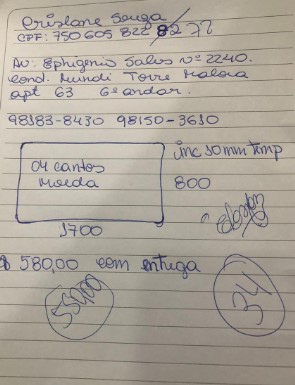 Crislane Souza
CPF: 750 605 822 82 72
Av: Ephigenio Sales nº 2240.
Cond. Mundi Torre
apt 63 6º andar.
98183-8430 98150-3610
04 cantos
moeda
inc 10mm temp
800
1700
$ 580,00 com entrega
550,00
34